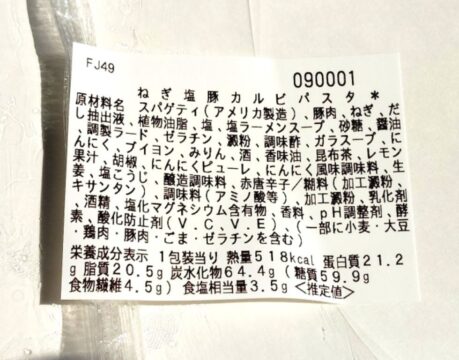 FJ49
090001
ねぎ塩豚カルビパスタ*
原材料名 スパゲティ(アメリカ製造)、豚肉、ねぎ、だ
し抽出液、植物油脂、塩、塩ラーメンスープ、砂糖、醤油
、調製ラード、ゼラチン、澱粉、調味酢、ガラスープ、に
んにく、ブイヨン、みりん、酒、香味油、昆布茶、レモン
果汁、胡椒、にんにくピューレ、にんにく風味調味料、生
姜、塩こうじ、醸造調味料、赤唐辛子/糊料(加工澱粉、
キサンタン)、調味料(アミノ酸等)、加工澱粉、乳化剤
、酒精、塩化マグネシウム含有物、香料、pH調整剤、酵
素、酸化防止剤(V.C、V.E)、(一部に小麦・大豆
・鶏肉・豚肉・ごま・ゼラチンを含む)
栄養成分表示 1包装当り 熱量518kcal 蛋白質21.2
g 脂質20.5g 炭水化物64.4g(糖質59.9g
食物繊維4.5g) 食塩相当量3.5g <推定値>